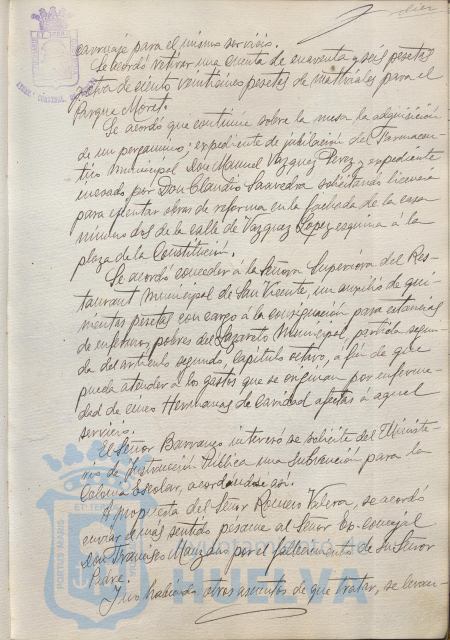 diez
carruaje para el mismo servicio.
Se acordó retirar una cuenta de cuarenta y seis pesetas
y otra de ciento veintinueve pesetas de materiales para el
Parque Moret.
Se acordó que continue sobre la mesa la adquisición
de un pergamino; expediente de jubilación del Farmaceu-
tico Municipal Don Manuel Vazquez Perez y expediente
incoado por Don Claudio Saavedra solicitando licencia
para ejecutar obras de reforma en la fachada de la casa
número dos de la calle de Vazquez Lopez esquina á la
plaza de la Constitución.
Se acordó conceder á la Señora Superiora del Res-
taurant Municipal de San Vicente, un auxilio de qui-
nientas pesetas con cargo á la consignación para estancias
de enfermos pobres del Lazareto Municipal, partida segun-
da del artículo segundo, capítulo octavo, á fin de que
pueda atender á los gastos que se originan por enferme-
dad de cinco Hermanas de Caridad afectas á aquel
servicio.
El Señor Barranco interesó se solicite del Ministe-
rio de Instrucción Publica una subvención para la
Colonia Escolar, acordándose así.
A propuesta del Señor Romero Valera, se acordó
enviar el más sentido pesame al Señor Ex-concejal
Don Francisco Manzano por el fallecimiento de su Señor
Padre.
Y no habiendo otros asuntos de que tratar, se levan-
Ayuntamiento de
HUELVA